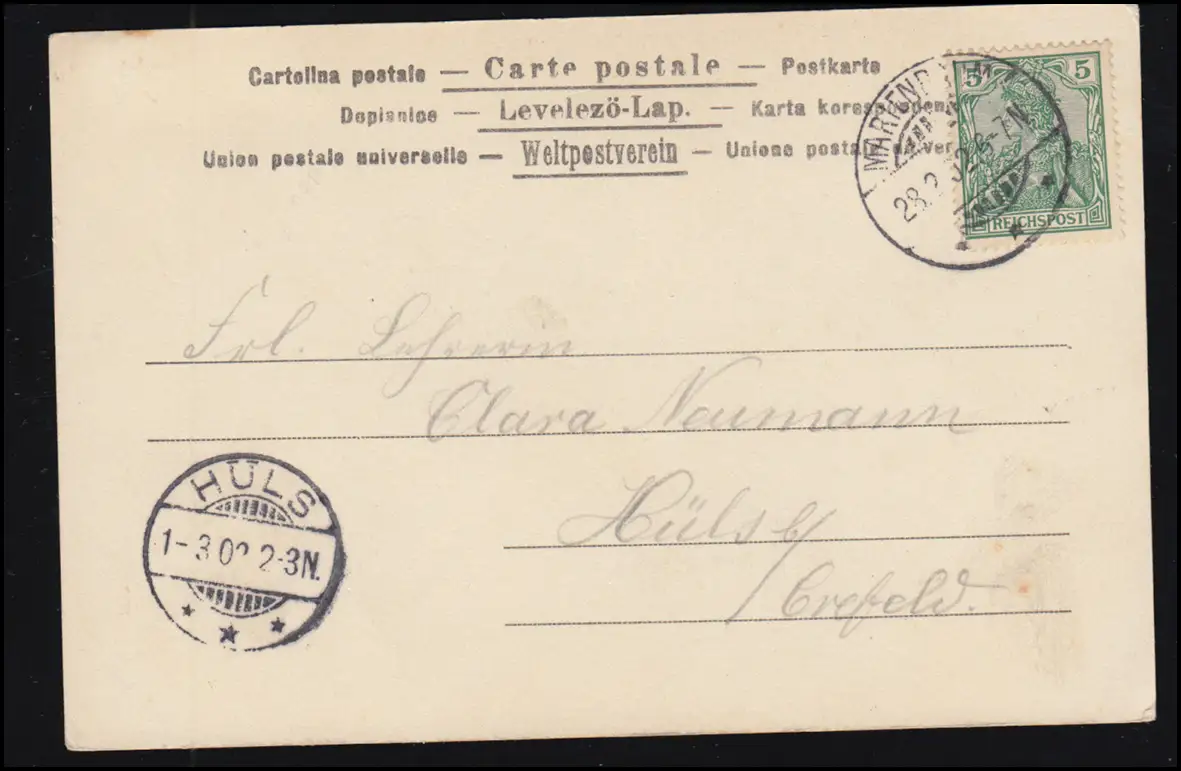 Cartolina postale — Carte postale — Postkarte
Dopisnice — Levelező-Lap. — Karta koresponden
Union postale universelle — Weltpostverein — Unione postale
5 5
REICHSPOST
28.2.02.6-7N.
Frl. Lehrerin
Clara Neumann
Hüls b/
Crefeld.
HÜLS
1-3 02 2-3N.